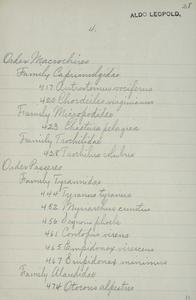 28
ALDO LEOPOLD,
4.
Order Macrochires
Family Caprimulgidae
417 Antrostomus vociferus
420 Chordeiles virginianus
Family Micropodidae
423 Chaetura pelagica
Family Trochilidae
428 Trochilus colubris
Order Passeres
Family Tyrannidae
444 Tyrannus tyrannus
452 Myiarchus crinitus
456 Sayornis phoebe
461 Contopus virens
465 Empidonax virescens
467 Empidonax minimus
Family Alaudidae
474 Otocoris alpestris